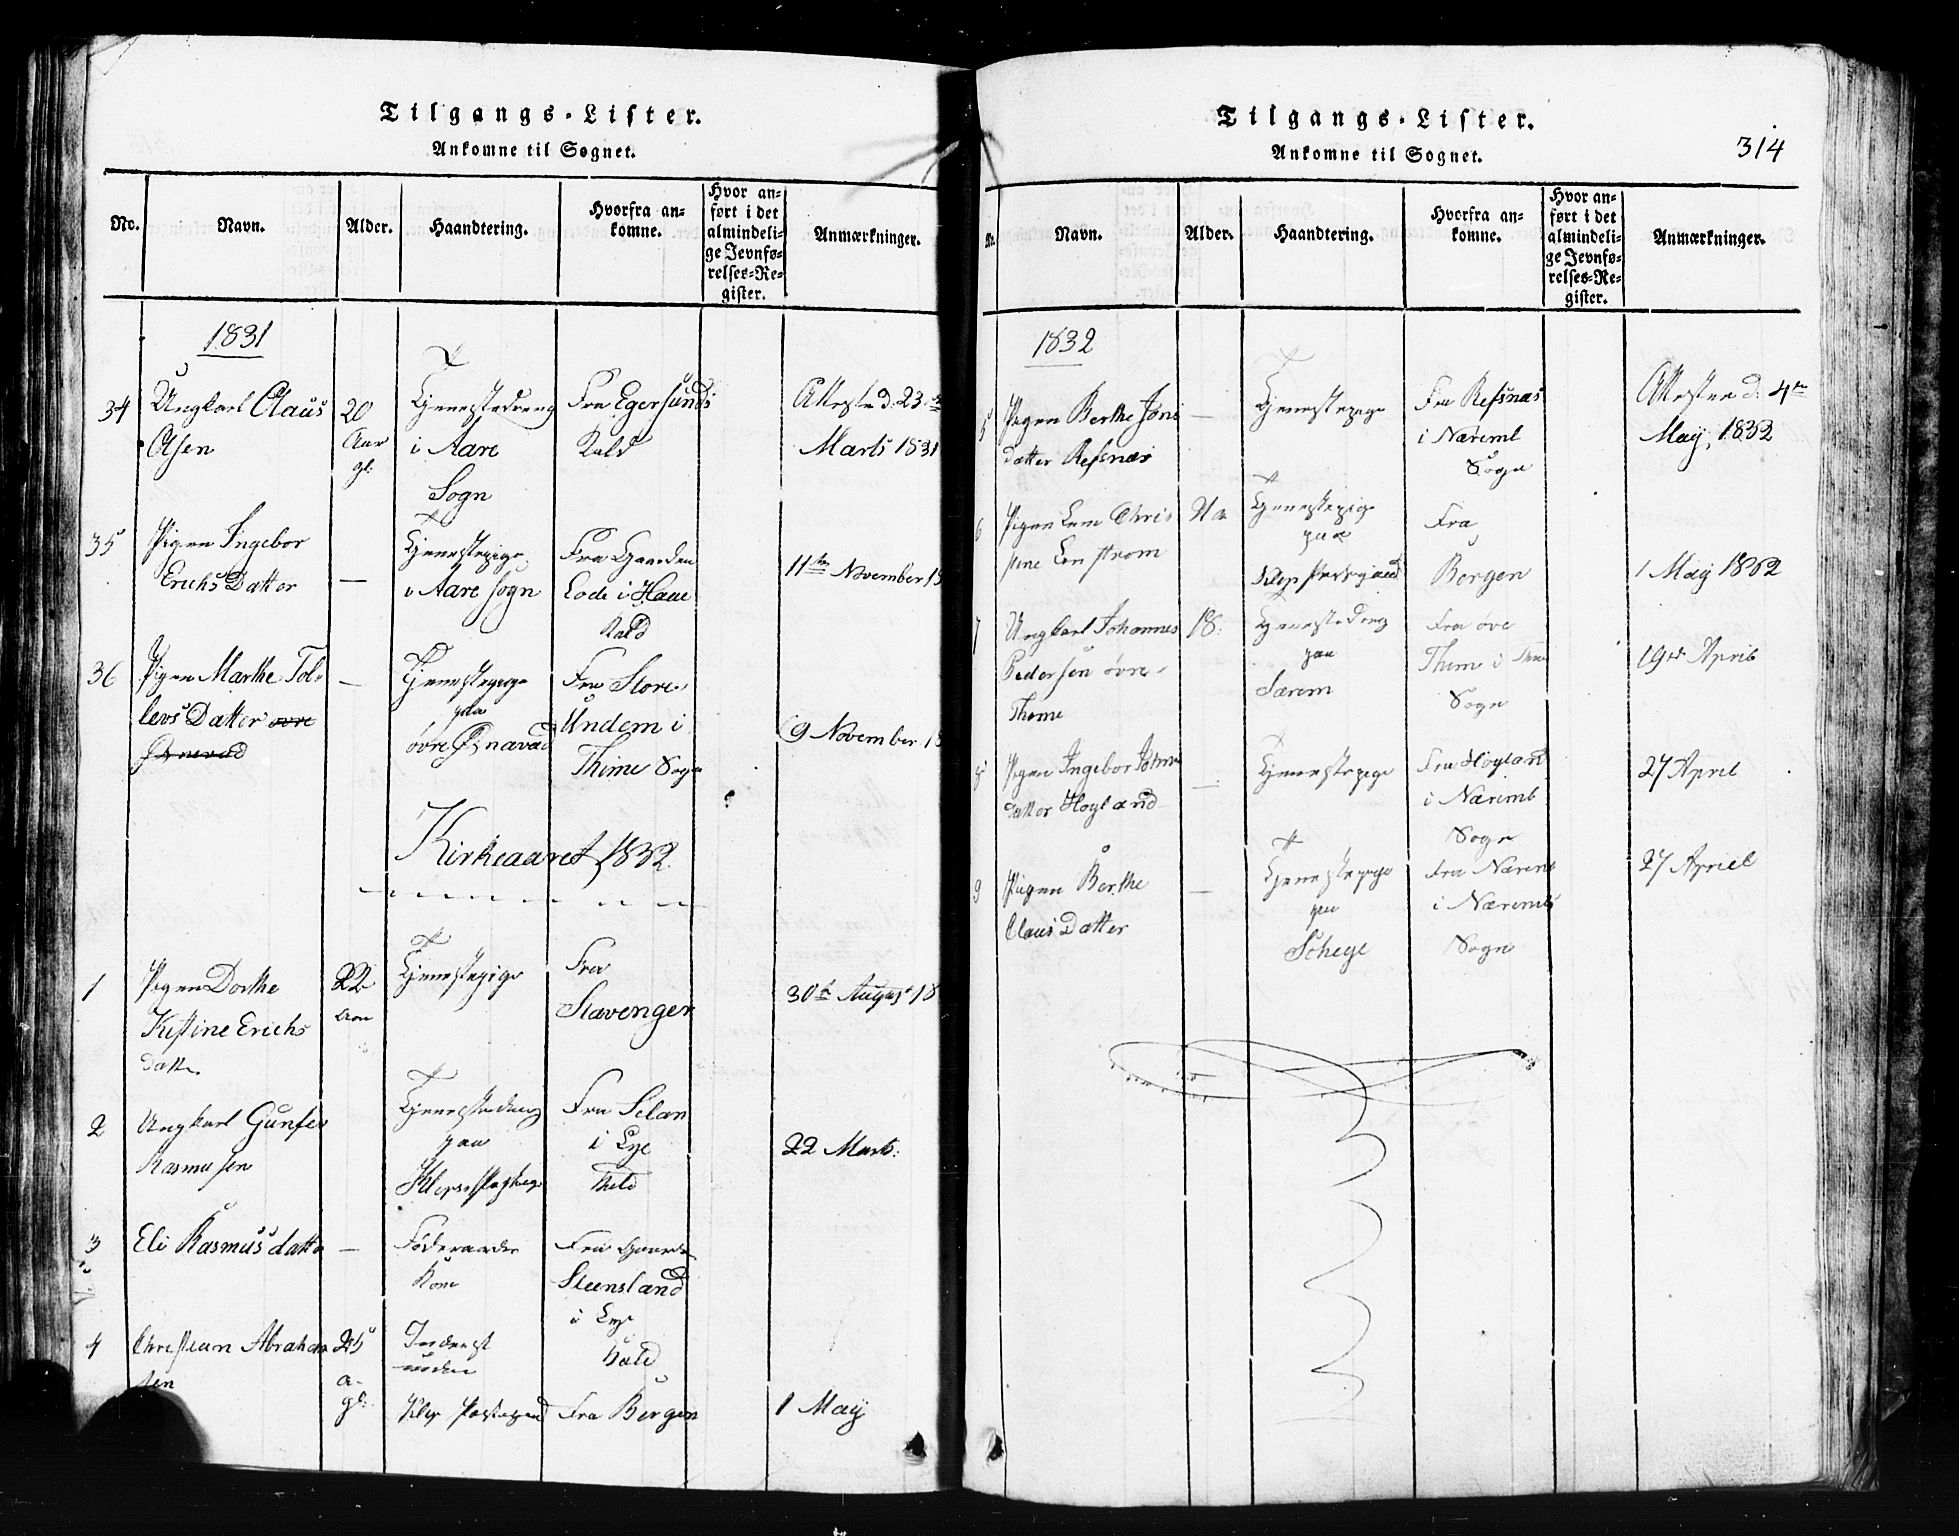 Tilgangs-Lister.
Ankomne til Sognet.
No.
Navn.
Alder.
Haandtering.
Hvorfra an-
komne.
Hvor an-
ført i det
almindeli-
ge Jevnfø-
relses-Re-
gister.
Anmærkninger.
1831
34
Ungkarl Claus
Olsen
20
Aar
gl:
Tjenestedreng
i Aare
Sogn
Fra Egersunds
Kald
Attest d. 23
Marts 1831
35
Pigen Ingebor
Erichs Datter
—
Tjenestepige
i Aare Sogn
Fra Gaarden
Lode i Haae
Kald
11te November 18
36
Pigen Marthe Tol-
levs Datter øvre
—
Tjenestepige
paa
øvre Øxnavad
Fra Store
Undem i
Thime Sogn
9 November 18
Kirkeaaret 1832.
1
Pigen Dorthe
Kistine Erichs
datter
22
Aar
Tjenestepige
Fra
Stavenger
30te August 18
2
Ungkarl Gunder
Rasmusen
Tjenestedreng
paa
Fra Selan
i Lye
Kald
22 Marts:
3
Eli Rasmusdatter
—
Føderaads
Kone
Fra Gaarden
Steensland
i Lye
Kald
4
Christian Abraham
sen
25
a-
gl:
Inderst
under
Klep Præstegaard
Fra Bergen
1 May
Tilgangs-Lister.
Ankomne til Sognet.
314
N.
Navn.
Alder.
Haandtering.
Hvorfra an-
komne.
Hvor an-
ført i det
almindeli-
ge Jevnfø-
relses-Re-
gister.
Anmærkninger.
1832
5
Pigen Berthe Jons
datter Refsnæs
—
Tjenestepige
Fra Refsnæs
i Næremb
Sogn
Attesten d. 4te
May, 1832
6
Pigen Chris
Tjenestepige
paa
Klep Præstegaard
Fra
Bergen
1 May 1832
7
Ungkarl Johannes
Pedersen øvre
Thime
18:
Tjenestedreng
paa
Særem
Fra øvre
Thime i
Sogn
19de April
8
Pigen Ingebor Johns
datter Hoyland
—
Tjenestepige
Fra Høyland
i Næremb
Sogn
27 April
9
Pigen Berthe
Claus Datter
—
Tjenestepige
paa
Schege
Fra Næremb
i Nærembs
Sogn
27 Apriel